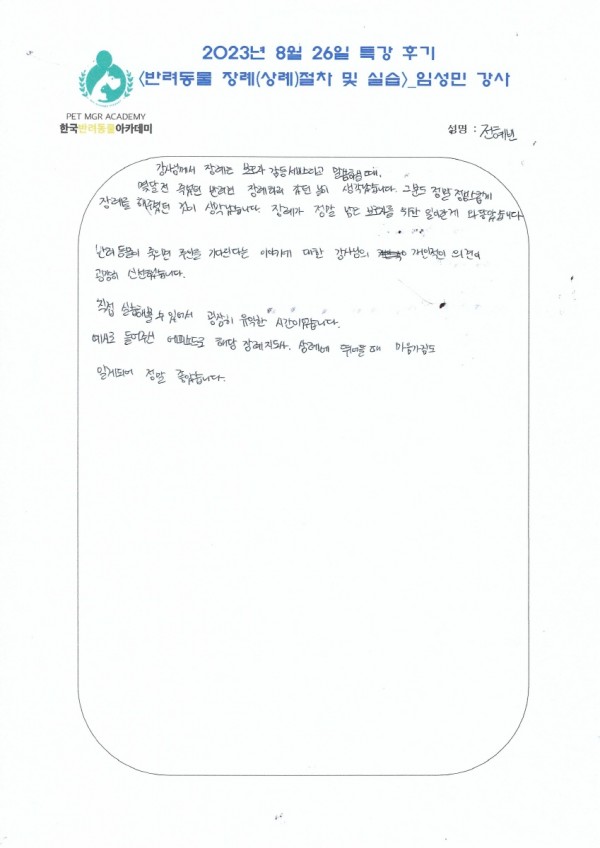 2023년 8월 26일 특강 후기
<반려동물 장례(상례)절차 및 실습>_임성민 강사
PET MGR ACADEMY
한국반려동물아카데미
성명 :
강사님께서 장례는 보호자 감동서비스라고 말씀하실 때,
몇달 전 죽었던 반려견 장례치러 갔던 날이 생각났습니다. 그분도 정말 정성스럽게
장례를 해주셨던 것이 생각났습니다. 장례가 정말 남은 보호자를 위한 일이란게 와닿았습니다.
반려동물이 죽으면 주인을 기다린다는 이야기에 대한 강사님의 개인적인 의견이
굉장히 신선했습니다.
직접 실습해볼 수 있어서 굉장히 유익한 시간이었습니다.
예시로 들어주신 에피소드로 해당 장례지도사, 상례에 뛰어들 때 마음가짐도
알게되어 정말 좋았습니다.